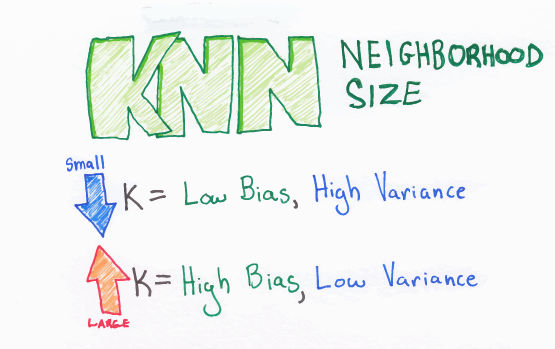 KNN NEIGHBORHOOD
SIZE
Small
K = Low Bias, High Variance
K = High Bias, Low Variance
LARGE